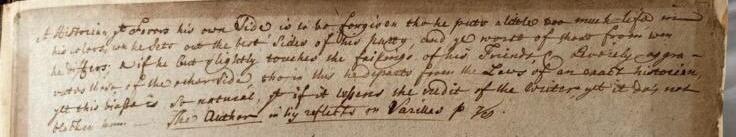 A Historian yt favors his own Side is to be forgiven tho he puts a little too much life in
his colors, wn he Sets out the best Sides of his party, and ye worst of those from wm
he differs; & if he but slightly touches the failings of his Friends, & severely aggra-
vates those of the other Side, tho in this he departs from the Laws of an exact historian,
yt this biass is so natural, yt if it lessens the credit of the Writer yt it doz not
blacken him. The Author in his reflects on Varillas p